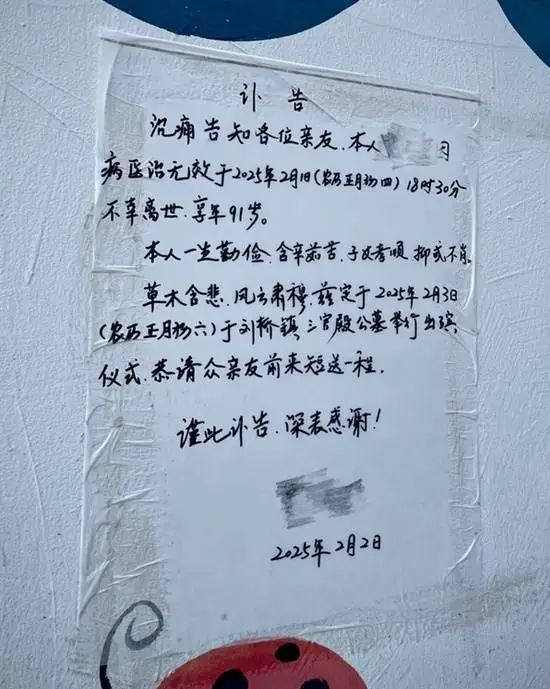 讣告
沉痛告知各位亲友,本人 因
病医治无效于2025年2月1日(农历正月初四)18时30分
不幸离世,享年91岁。
本人一生勤俭、含辛茹苦,子女孝顺,抑或不肖。
草木含悲,风云肃穆,兹定于2025年2月3日
(农历正月初六)于刘桥镇三官殿公墓举行出殡
仪式,恭请众亲友前来短送一程。
谨此讣告,深表感谢!
2025年2月2日